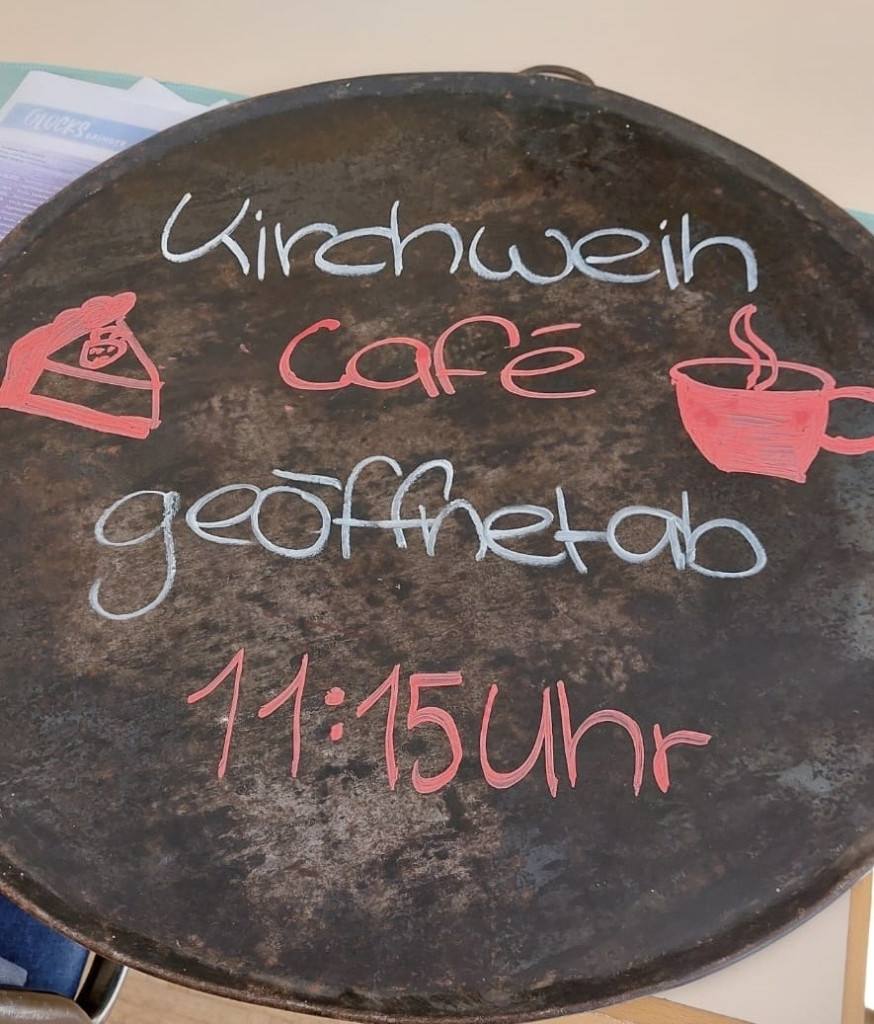 GLÜCKSBRINGER
Kirchweih
Café
geöffnet ab
11:15 Uhr